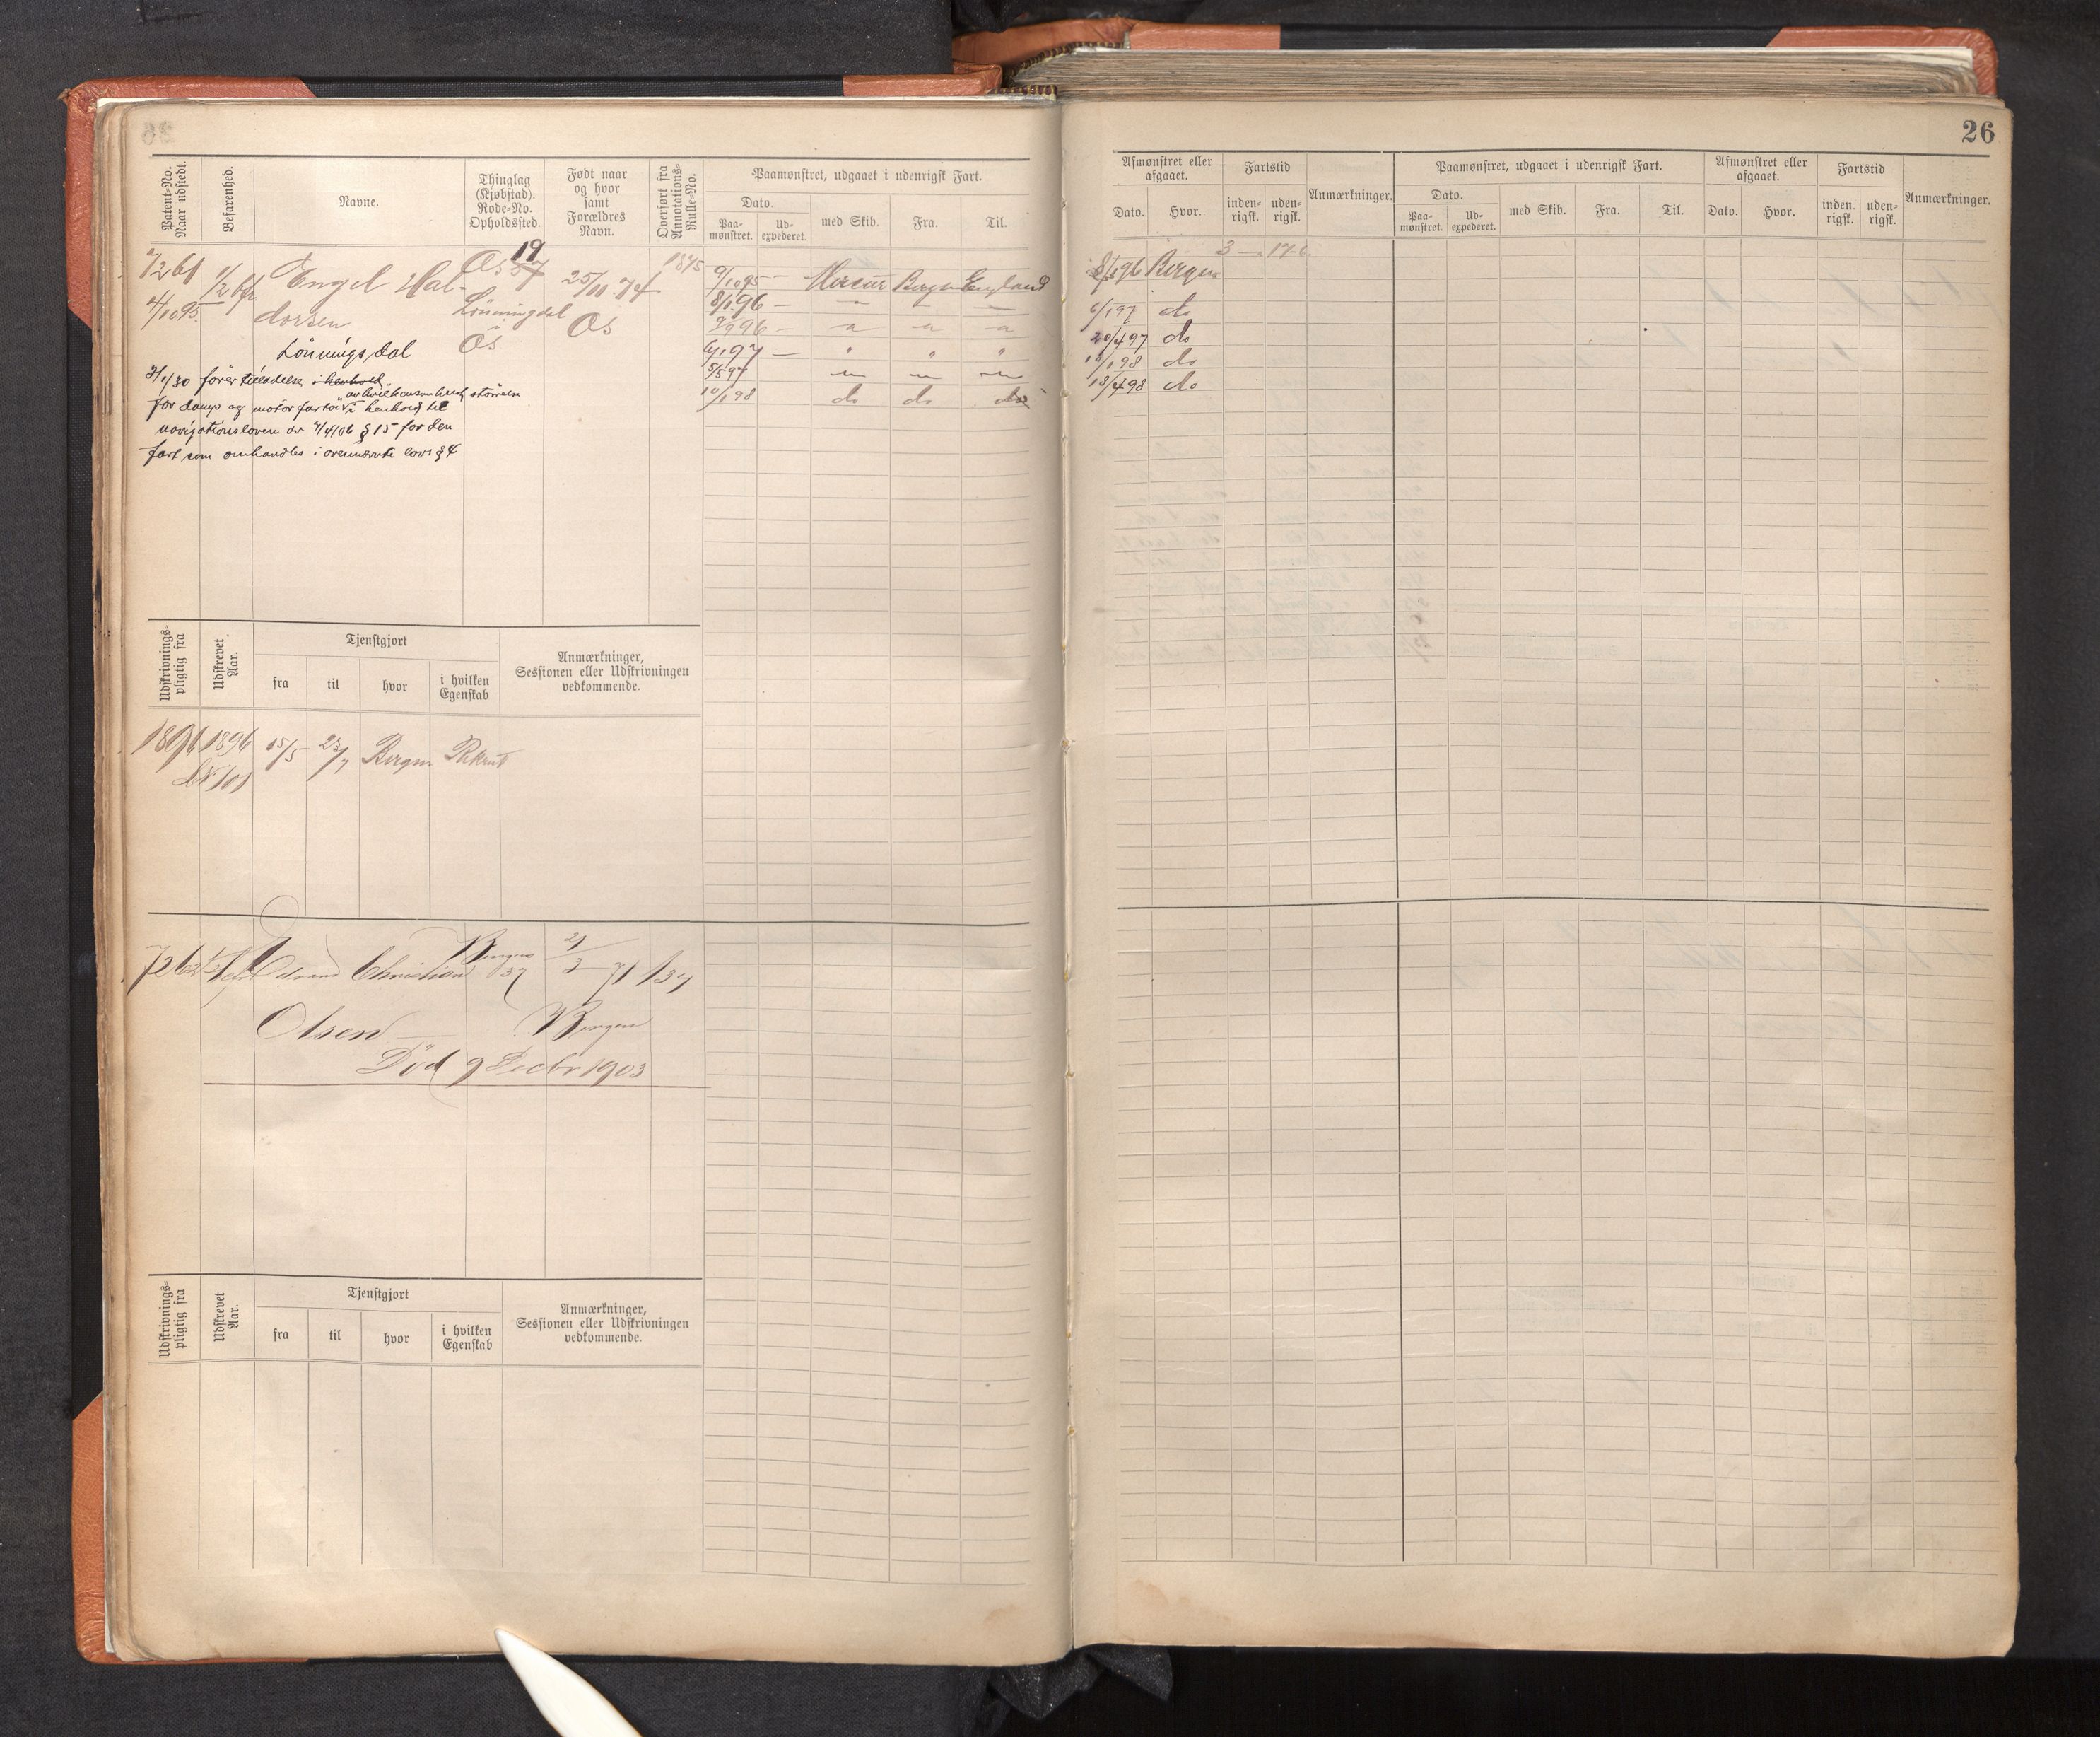 26
Patent-No.
Naar udstedt.
Befarenhed.
Navne.
Thinglag
(Kjøbstad).
Rode-No.
Opholdssted.
Født naar
og hvor
samt
Forældres
Navn.
Overført fra
Annotations-
Rulle-No.
Paamønstret, udgaaet i udenrigsk Fart.
Dato.
Paa-
mønstret.
Ud-
expederet.
med Skib.
Fra.
Til.
7261
4/10 95.
1/2 bfr.
Engel Hal-
dorsen
Lönningsdal
Os 57 19
Lönningdal
Os
25/11 74
Os
1845
9/10 95 — Mercur Bergen England
8/1 96 — " — —
9/9 96 — " " "
6/1 97 — " " "
5/5 97 " " "
10/1 98 do do do
3/1/30 förer tilladelse i henhold
for damp og motorfartöi av hvilkensomhelst störrelse i henhold til
navigationsloven av 4/4/06 § 15 for den
fart som omhandles i ovennævnte lovs § 4
Udskrivnings-
pligtig fra
Udskrevet
Aar.
Tjenstgjort
fra
til
hvor
i hvilken
Egenskab
Anmærkninger,
Sessionen eller Udskrivningen
vedkommende.
1896 1896 15/5 23/7 Bergen Rekrut
No 101
7262 Edvard Christian Bergen 37 21/3 71 134
Olsen Bergen
Död 9 Decbr 1903
Udskrivnings-
pligtig fra
Udskrevet
Aar.
Tjenstgjort
fra
til
hvor
i hvilken
Egenskab
Anmærkninger,
Sessionen eller Udskrivningen
vedkommende.
Afmønstret eller
afgaaet.
Dato.
Hvor.
Fartstid
inden-
rigsk.
uden-
rigsk.
Anmærkninger.
Paamønstret, udgaaet i udenrigsk Fart.
Dato.
Paa-
mønstret.
Ud-
expederet.
med Skib.
Fra.
Til.
Afmønstret eller
afgaaet.
Dato.
Hvor.
Fartstid
inden.
rigsk.
uden-
rigsk.
Anmærkninger.
3 — 17-6
8/1 96 Bergen
6/1 97 do
20/4 97 do
10/1 98 do
18/4 98 do